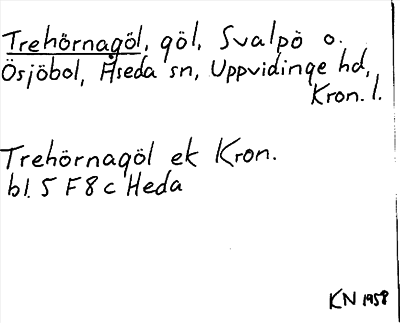 Trehörnagöl, göl, Svalpö o.
Ösjöbol, Åseda sn, Uppvidinge hd,
Kron. l.
Trehörnagöl ek Kron.
bl. 5 F 8 c Heda
KN 1958